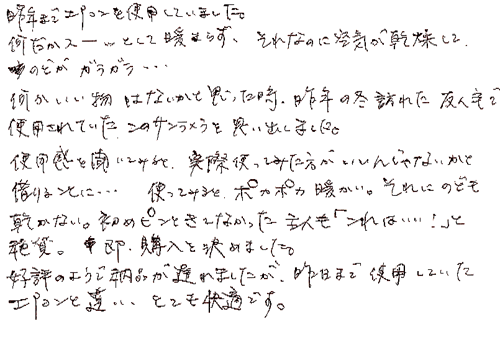 昨年までエアコンを使用していました。
何だかスーッとして暖まらず、それなのに空気が乾燥して、
のどがガラガラ・・・
何かいい物はないかと思った時、昨年の冬訪れた友人宅で
使用されていたこのサンラメラを思い出しました。
使用感を聞いてみると、実際使ってみた方がいいんじゃないかと
借りることに・・・ 使ってみると、ポカポカ暖かい。それにのども
乾かない。初めピンときてなかった主人も「これはいい!」と
絶賛。即、購入を決めました。
好評のようで納品が遅れましたが、昨日まで使用していた
エアコンと違い、とても快適です。